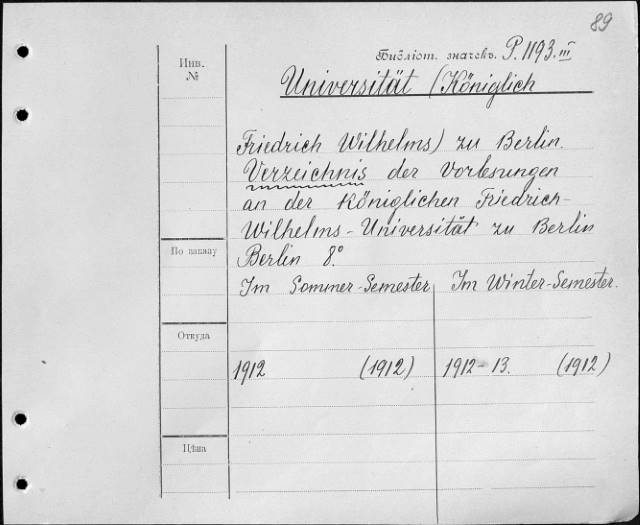 89
Библіот. значекъ. P. 1193. III
Инв.
№
Universität (Königlich
Friedrich Wilhelms) zu Berlin.
Verzeichnis der Vorlesungen
an der Königlichen Friedrich-
Wilhelms-Universität zu Berlin
По заказу
Berlin 8.°
Im Sommer-Semester
Im Winter-Semester.
Откуда
1912 (1912)
1912-13. (1912)
Цѣна